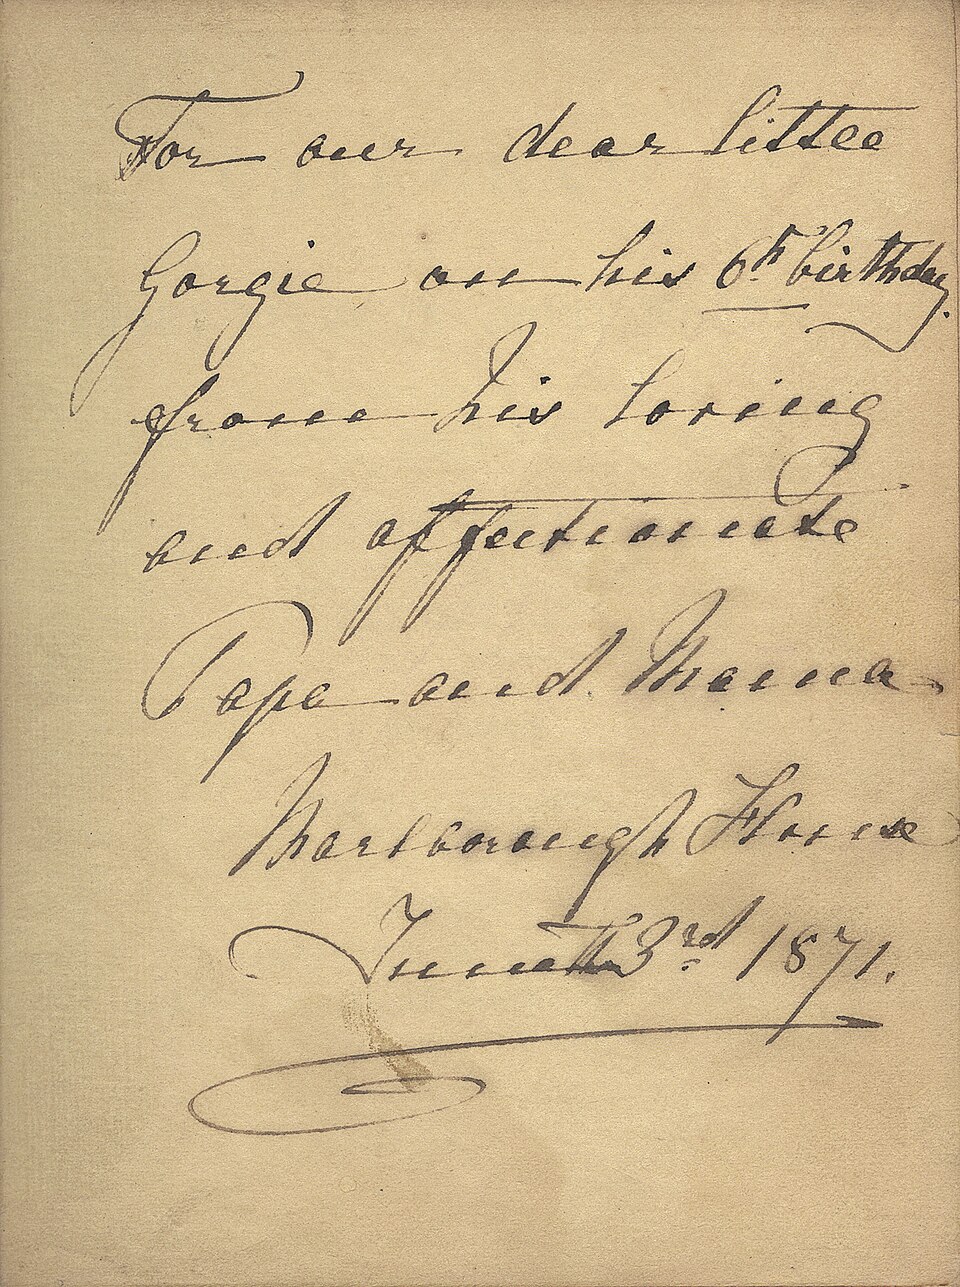 For our dear little
Gorgie on his 6th birthday.
from his loving
and affectionate
Papa and Mama
Marlborough House
June th 3rd 1871.